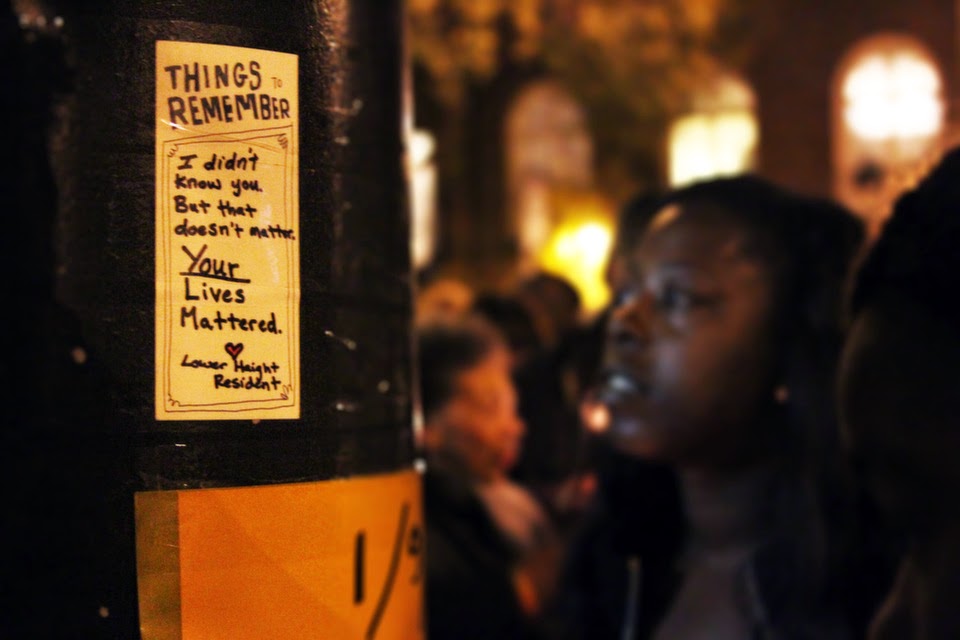 THINGS TO
REMEMBER
I didn't
know you.
But that
doesn't matter.
Your
Lives
Mattered.
Lower Haight
Resident
1/